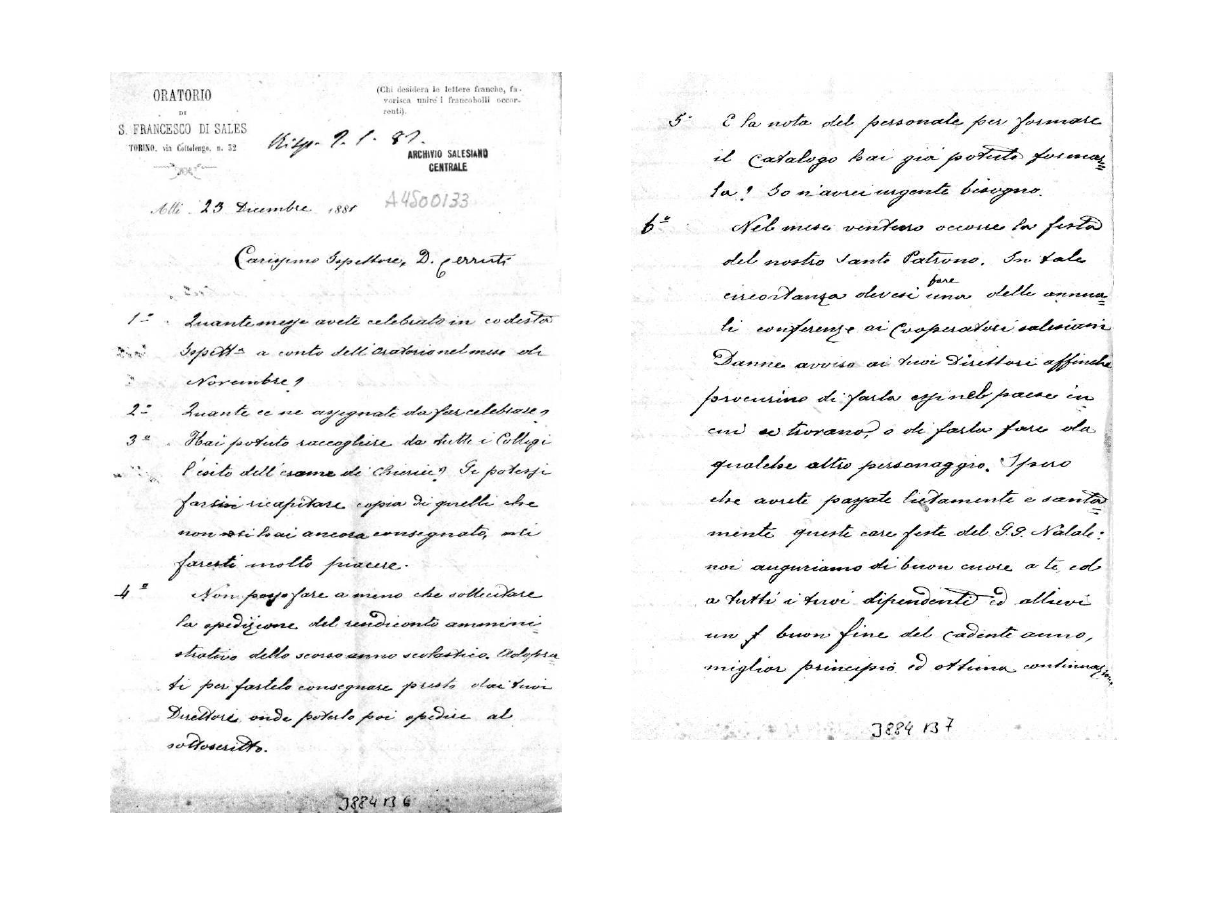 ORATORIO
DI
S. FRANCESCO DI SALES
TORINO, via Cottolengo, n. 32
(Chi desidera le lettere franche, fa-
vorisca unire i francobolli occor-
renti).
Risp. 9. 1. 82.
ARCHIVIO SALESIANO
CENTRALE
A4500133
Alli 23 Dicembre 1881
Carissimo Ispettore, D. Cerruti
1º Quante messe avete celebrato in codesta
Ispettª a conto dell'Oratorio nel mese di
Novembre?
2º Quante ce ne assegnate da far celebrare?
3º Hai potuto raccogliere da tutti i Collegi
l'esito dell'esame di Chierici? Se potessi
farmi ricapitare copia di quelli che
non si hai ancora consegnato, mi
faresti molto piacere.
4º Non posso fare a meno che sollecitare
la spedizione del rendiconto ammini-
strativo dello scorso anno scolastico. Adopra
ti per fartelo consegnare presto dai tuoi
Direttori onde poterlo poi spedire al
sottoscritto.
J884 B 6
5º E la nota del personale per formare
il Catalogo hai già potuto formar=
la? Io n'avrei urgente bisogno.
6º Nel mese venturo occorre la festa
del nostro Santo Patrono. In tale
circostanza devesi fare una delle annua=
li conferenze ai Cooperatori salesiani
Danne avviso ai tuoi Direttori affinchè
procurino di farla essi nel paese in
cui si trovano, o di farla fare da
qualche altro personaggio. Spero
che avrete passate lietamente e santa=
mente queste care feste del S.S. Natale:
noi auguriamo di buon cuore a te, ed
a tutti i tuoi dipendenti ed allievi
un buon fine del cadente anno,
miglior principio ed ottima continuazione
J884 B 7